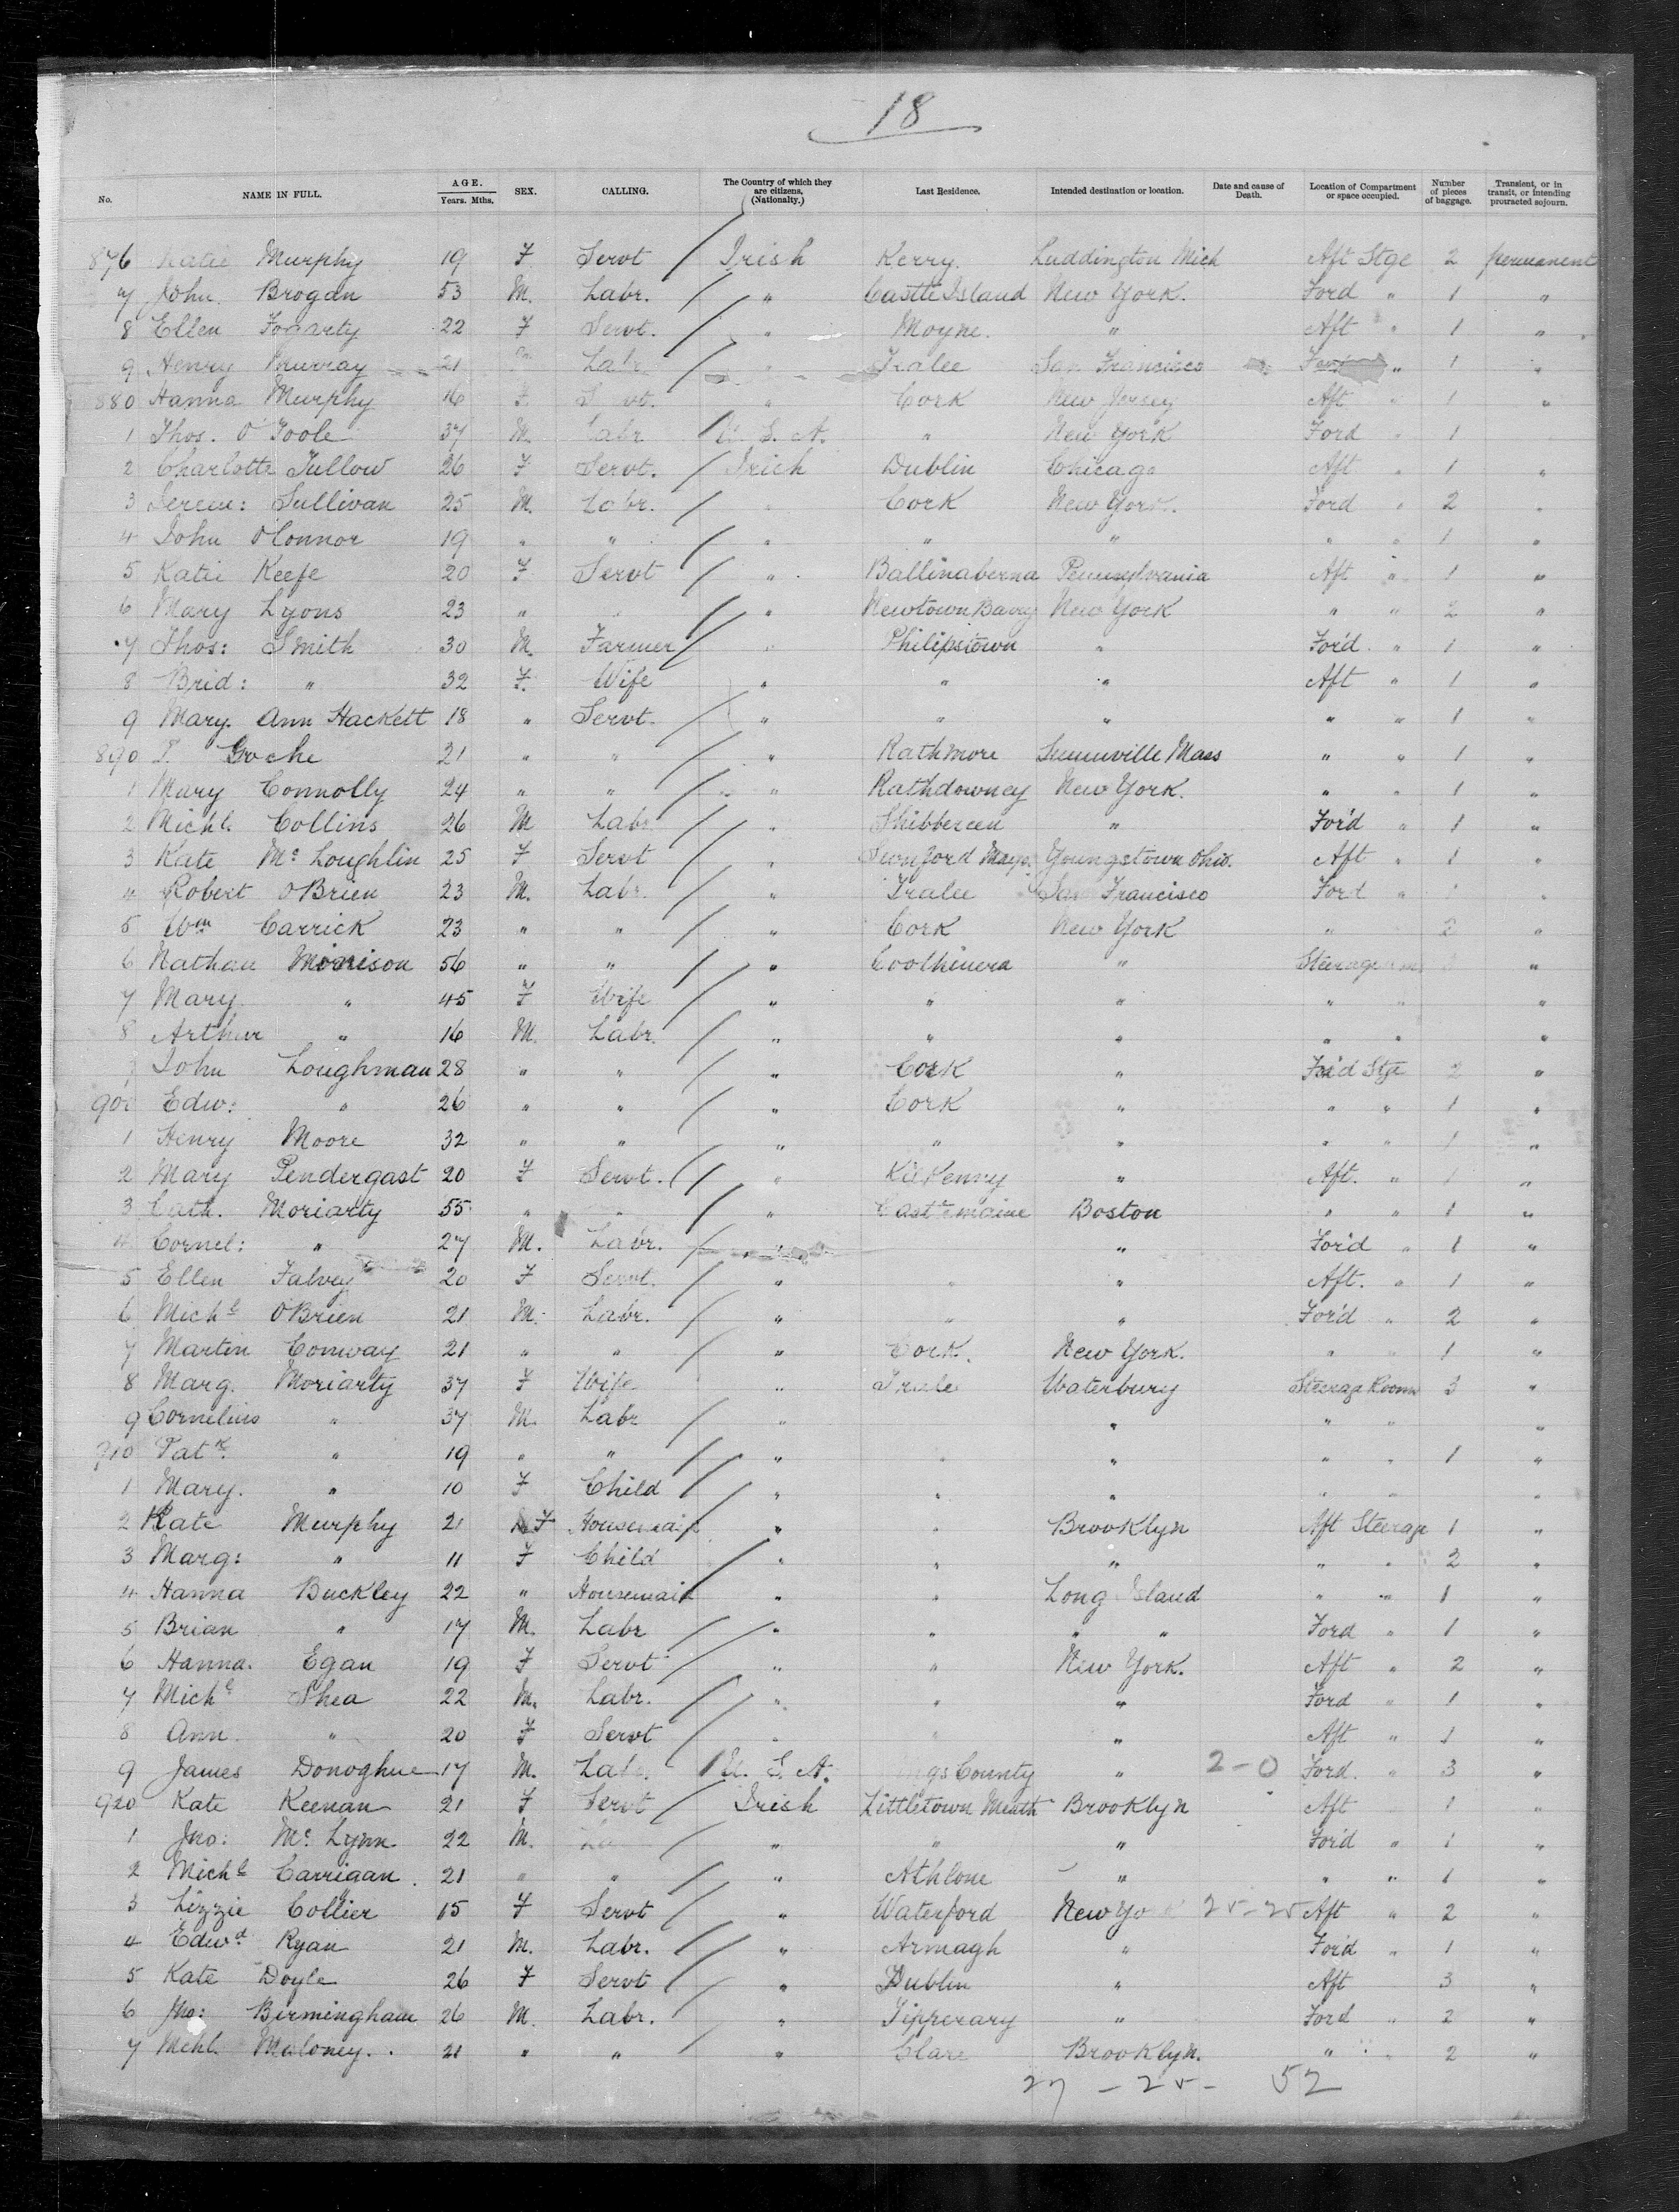 18
No. NAME IN FULL. AGE. Years. Mths. SEX. CALLING. The Country of which they are citizens, (Nationality.) Last Residence. Intended destination or location. Date and cause of Death. Location of Compartment or space occupied. Number of pieces of baggage. Transient, or in transit, or intending protracted sojourn.
876 Katie Murphy 19 F Servt Irish Kerry. Luddington Mich Aft Stge 2 permanent
7 John Brogan 53 M. Labr. " Castle Island New York. Ford " 1 "
8 Ellen Fogarty 22 F Servt. " Moyne. " Aft " 1 "
9 Henry Murray 21 M Labr " Tralee San Francisco Ford " 1 "
880 Hanna Murphy 16 F Servt. " Cork New Jersey Aft " 1 "
1 Thos. O'Toole 37 M. Labr U. S. A. " New York Ford " 1
2 Charlotte Tullow 26 F Servt. Irish Dublin Chicago Aft " 1 "
3 Jerem: Sullivan 25 M. Labr. " Cork New York. Ford " 2 "
4 John O'Connor 19 " " " " " " " 1 "
5 Katie Keefe 20 F Servt " Ballinaberna Pennsylvania Aft " 1 "
6 Mary Lyons 23 " " " Newtown Barry New York " " 2 "
7 Thos: Smith 30 M. Farmer " Philipstown " For'd " 1 "
8 Brid: " 32 F. Wife " " " Aft " 1 "
9 Mary. Ann Hackett 18 " Servt. " " " " " 1 "
890 21 " " " Rathmore Mass " " 1 "
1 Mary Connolly 24 " " " Rathdowney New York. " " 1 "
2 Michl. Collins 26 M Labr " Skibbereen " For'd " 1 "
3 Kate Mc Loughlin 25 F Servt " Mayo. Youngstown Ohio. Aft " 1 "
4 Robert O'Brien 23 M. Labr. " Tralee San Francisco Ford " 1 "
5 Wm Carrick 23 " " " Cork New York " 2 "
6 Nathan Morrison 56 " " " " Steerage "
7 Mary " 45 F Wife " " " " " "
8 Arthur " 16 M. Labr. " " " " " "
John Loughman 28 " " " Cork " For'd Stge 2 "
900 Edw: " 26 " " " Cork " " " 1 "
1 Henry Moore 32 " " " " " " " 1 "
2 Mary Pendergast 20 F Servt. " Kilkenny " Aft. " 1 "
3 Cath. Moriarty 55 " " " Castlemaine Boston " " 1 "
4 Cornel: " 27 M. Labr. " " For'd " 1 "
5 Ellen Falvey 20 F Servt. " " " Aft. " 1 "
6 Michl O'Brien 21 M. Labr. " " " For'd " 2 "
7 Martin Conway 21 " " " Cork. New York. " " 1 "
8 Marg. Moriarty 37 F Wife " Tralee Waterbury Steerage Room 3 "
9 Cornelius " 37 M. Labr " " " " "
910 Patk. " 19 " " " " " " " 1 "
1 Mary. " 10 F Child " " " " " "
2 Kate Murphy 21 F Housemaid " " Brooklyn Aft Steerage 1 "
3 Marg: " 11 F Child " " " " " 2 "
4 Hanna Buckley 22 " Housemaid " " Long Island " " 1 "
5 Brian " 17 M. Labr " " " " Ford " 1 "
6 Hanna. Egan 19 F Servt " " New York. Aft " 2 "
7 Michl Shea 22 M. Labr. " " " Ford " 1 "
8 Ann. " 20 F Servt " " " Aft " 1 "
9 James Donoghue 17 M. Labr. U. S. A. gs County " 2-0 Ford. " 3 "
920 Kate Keenan 21 F Servt Irish Littletown Meath Brooklyn Aft 1 "
1 Jno: Mc Lynn. 22 M. La " " " For'd " 1 "
2 Michl Carrigan. 21 " " " Athlone " " " 1 "
3 Lizzie Collier 15 F Servt " Waterford New Yo 25-25 Aft " 2 "
4 Edwd Ryan 21 M. Labr. " Armagh " For'd " 1 "
5 Kate Doyle 26 F Servt " Dublin " Aft 3 "
6 Jno: Birmingham 26 M. Labr. " Tipperary " Ford " 2 "
7 Mchl. Maloney. 21 " " " Clare Brooklyn. " " 2 "
27 - 25 - 52